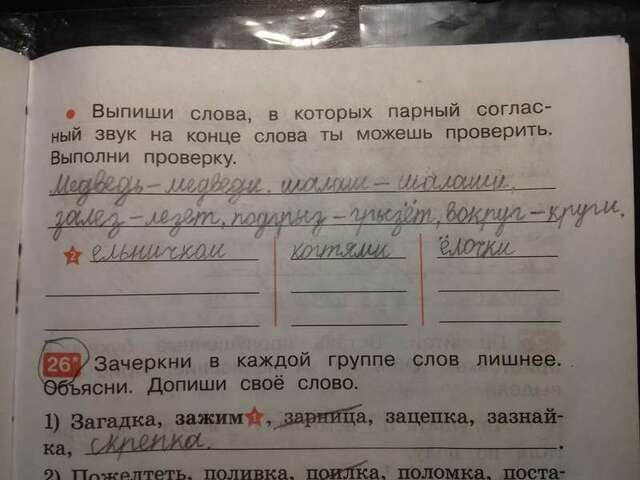 • Выпиши слова, в которых парный соглас-
ный звук на конце слова ты можешь проверить.
Выполни проверку.
Медведь – медведи, шалаш – шалаши,
залез – лезет, подпрыг – прыгёт, вокруг – круги,
2 ельничком котями ёлочки
26* Зачеркни в каждой группе слов лишнее.
Объясни. Допиши своё слово.
1) Загадка, зажим 1, зарница, зацепка, зазнай-
ка, скрепка.
2) Пожелтеть, поливка, поилка, поломка, поста-